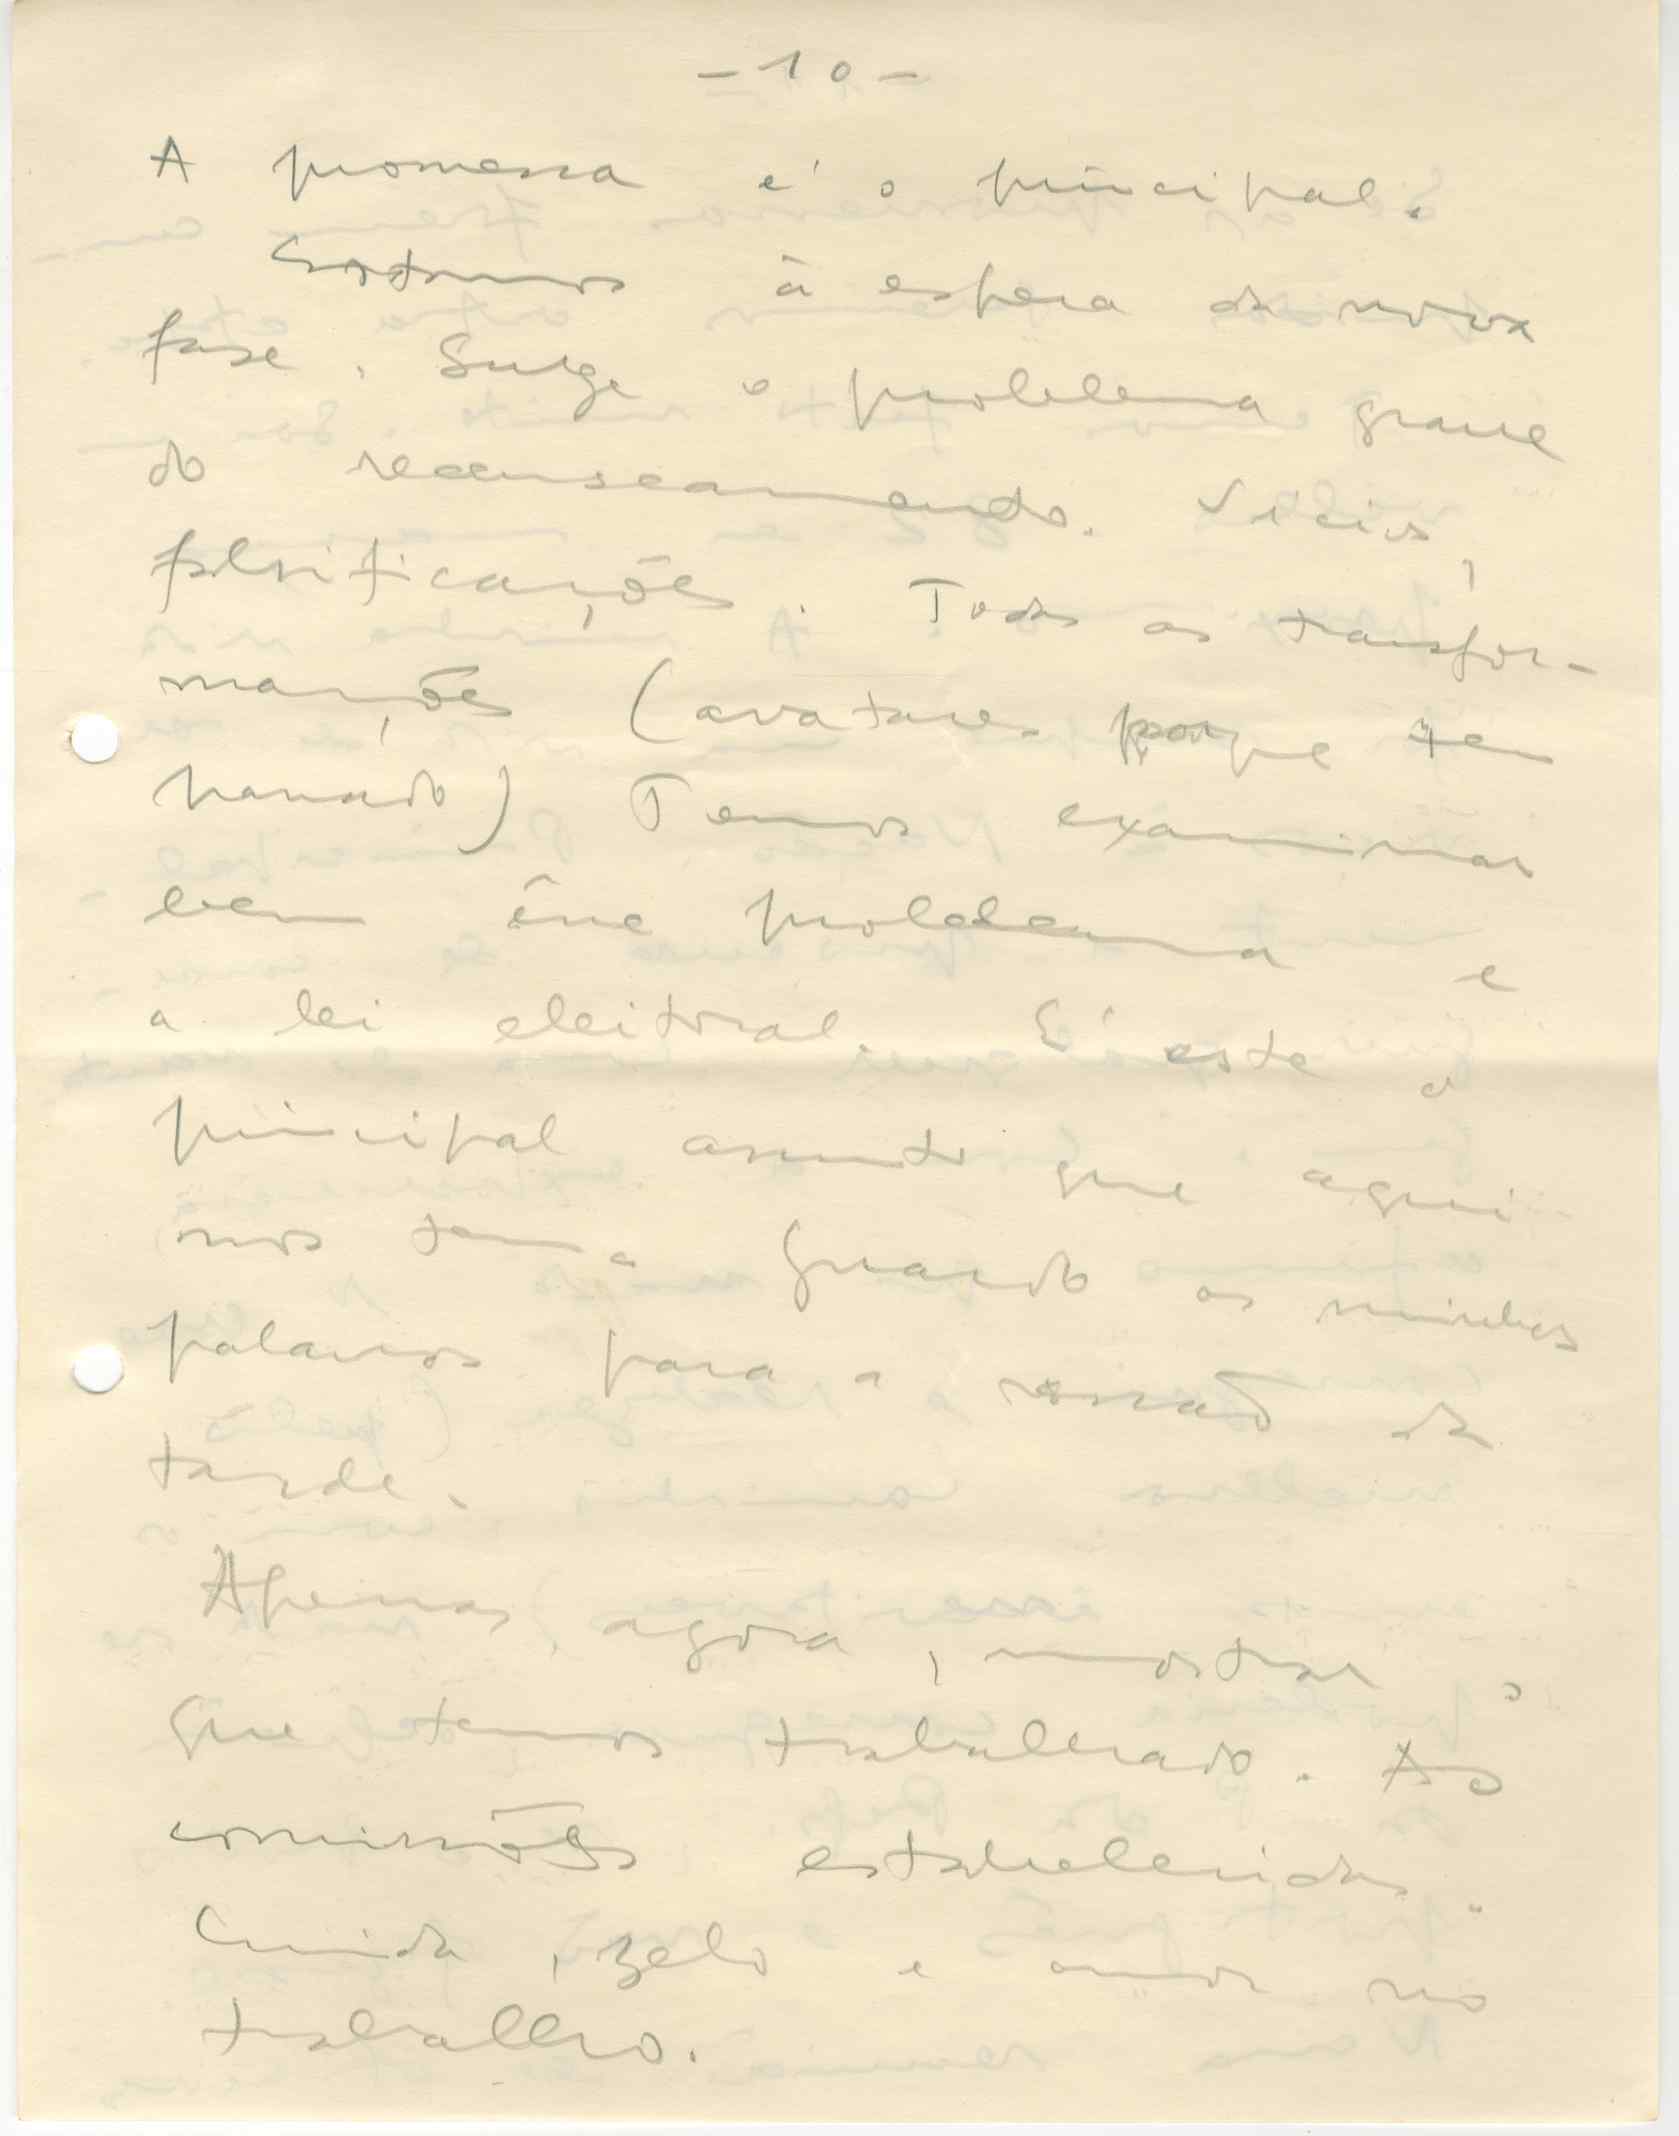 - 10 -
A promessa é o principal.
Estamos à espera da nova
fase. Surge o problema grave
do recenseamento. Vicios,
falsificações. Todas as transfor-
mações (avatares porque tem
passado) Temos examinar
bem êsse problema e
a lei eleitoral. É este o
principal assunto que aqui
nos tem. Guardo as minhas
palavras para a sessão da
tarde.
Apenas, agora, mostrar o
que temos trabalhado. As
comissões estabelecidas.
Cuida, zelo e amor no
trabalho.